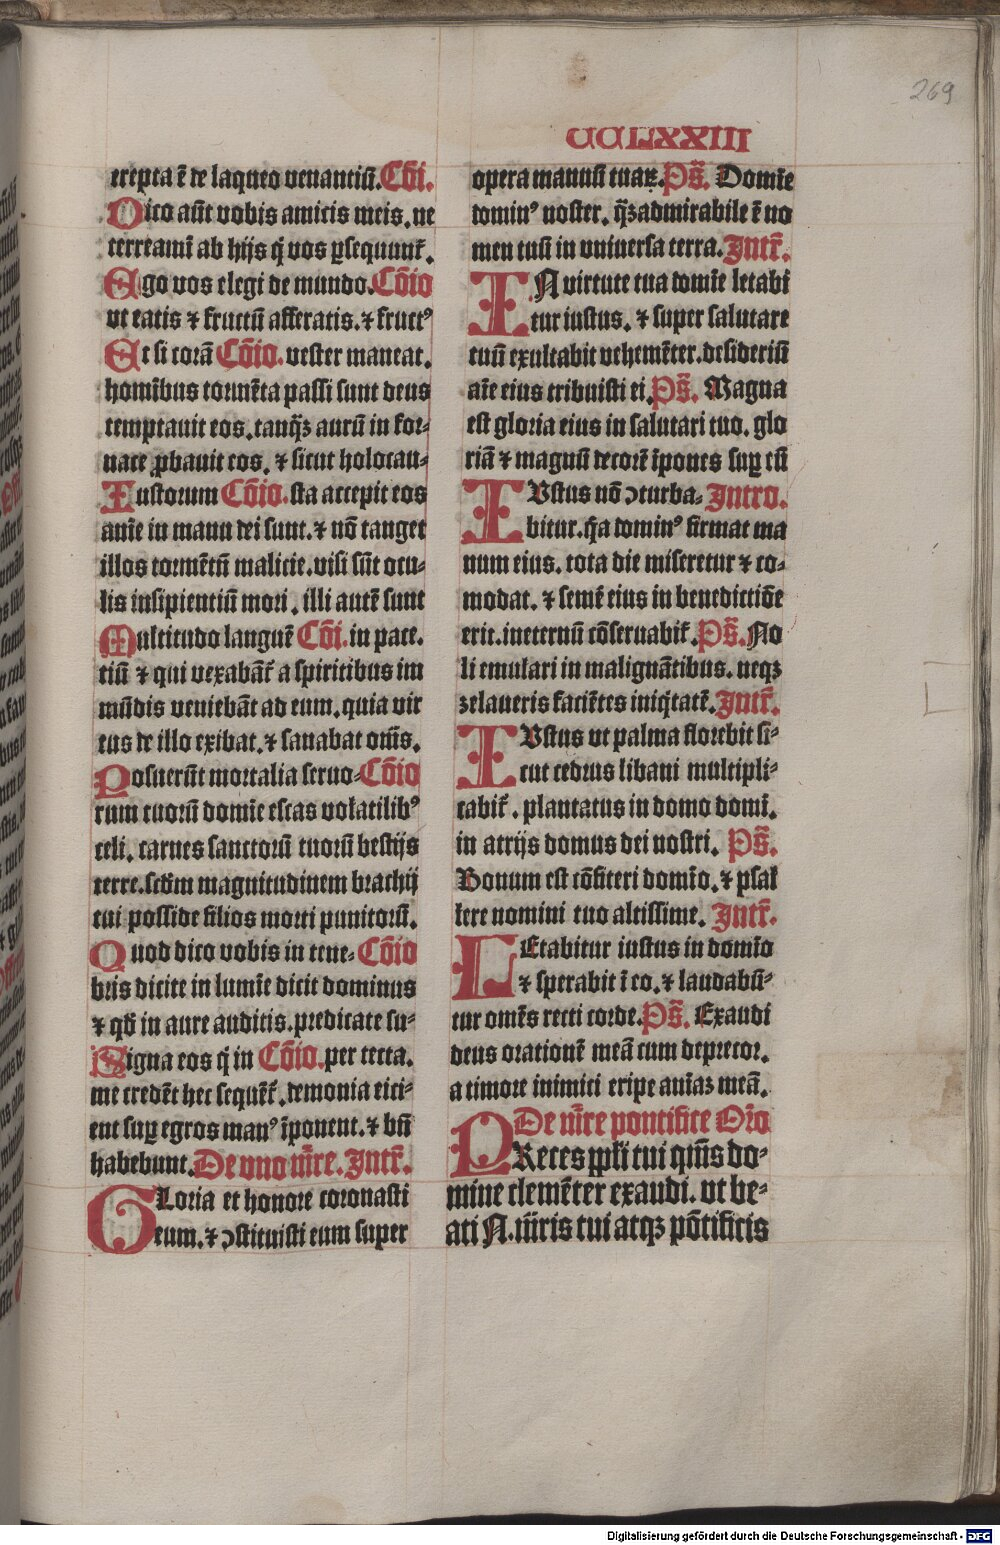 269
CCLXXIII
erepta ē de laqueo venantiū. Cōi.
Dico aūt vobis amicis meis. ne
terreamī ab hijs q̄ vos ꝑsequunt᷑.
Ego vos elegi de mundo. Cōio
vt eatis ⁊ fructū afferatis. ⁊ fruct⁹
Et si corā Cōio. vester maneat.
homībus tormēta passi sunt deus
temptauit eos. tanq̄ꝫ aurū in for-
nace ꝓbauit eos. ⁊ sicut holocau-
Iustorum Cōio. sta accepit eos
anīe in manu dei sunt. ⁊ nō tanget
illos tormētū malicie. visi sūt ocu-
lis insipientiū mori. illi autē sunt
Multitudo languē Cōi. in pace.
tiū ⁊ qui vexabāt᷑ a spiritibus im
mūdis veniebāt ad eum. quia vir
tus de illo exibat. ⁊ sanabat om̄s.
Posuerūt mortalia seruo- Cōio
rum tuorū domīe escas volatilib⁹
celi. carnes sanctorū tuorū bestijs
terre. scd̄m magnitudinem brachij
tui posside filios morti punitorū.
Quod dico vobis in tene- Cōio
bris dicite in lumīe dicit dominus
⁊ qd̄ in aure auditis. predicate su-
Signa eos q̄ in Cōio. per tecta.
me credēt hec sequēt᷑. demonia eici-
ent suꝑ egros man⁹ īponent. ⁊ bn̄
habebunt. De vno m̄re. Intr̄.
GLoria et honore coronasti
eum. ⁊ ↄstituisti eum super
opera manuū tuaꝝ. Ps̄. Domīe
domin⁹ noster. q̄ꝫ admirabile ē no
men tuū in vniuersa terra. Intr̄.
IN virtute tua domīe letabi
tur iustus. ⁊ super salutare
tuū exultabit vehemēter. desideriū
aīe eius tribuisti ei. Ps̄. Magna
est gloria eius in salutari tuo. glo
riā ⁊ magnū decorē īpones suꝑ eū
IVstus nō ↄturba- Intro.
bitur. q̄a domin⁹ firmat ma
num eius. tota die miseretur ⁊ co-
modat. ⁊ semē eius in benedictiōe
erit. ineternū cōseruabit᷑. Ps̄. No
li emulari in malignātibus. neqꝫ
zelaueris faciētes iniq̄tatē. Intr̄.
IVstus vt palma florebit si-
cut cedrus libani multipli-
cabit᷑. plantatus in domo domī.
in atrijs domus dei nostri. Ps̄.
Bonum est cōfiteri domīo. ⁊ psal
lere nomini tuo altissime. Intr̄.
LEtabitur iustus in domīo
⁊ sperabit ī eo. ⁊ laudabū-
tur omēs recti corde. Ps̄. Exaudi
deus orationē meā cum deprecor.
a timore inimici eripe anīaꝫ meā.
De m̄re pontifice Or̄o
PReces ppl̄i tui qm̄s do-
mine clemēter exaudi. vt be-
ati N. m̄ris tui atqꝫ pōtificis
Digitalisierung gefördert durch die Deutsche Forschungsgemeinschaft - DFG